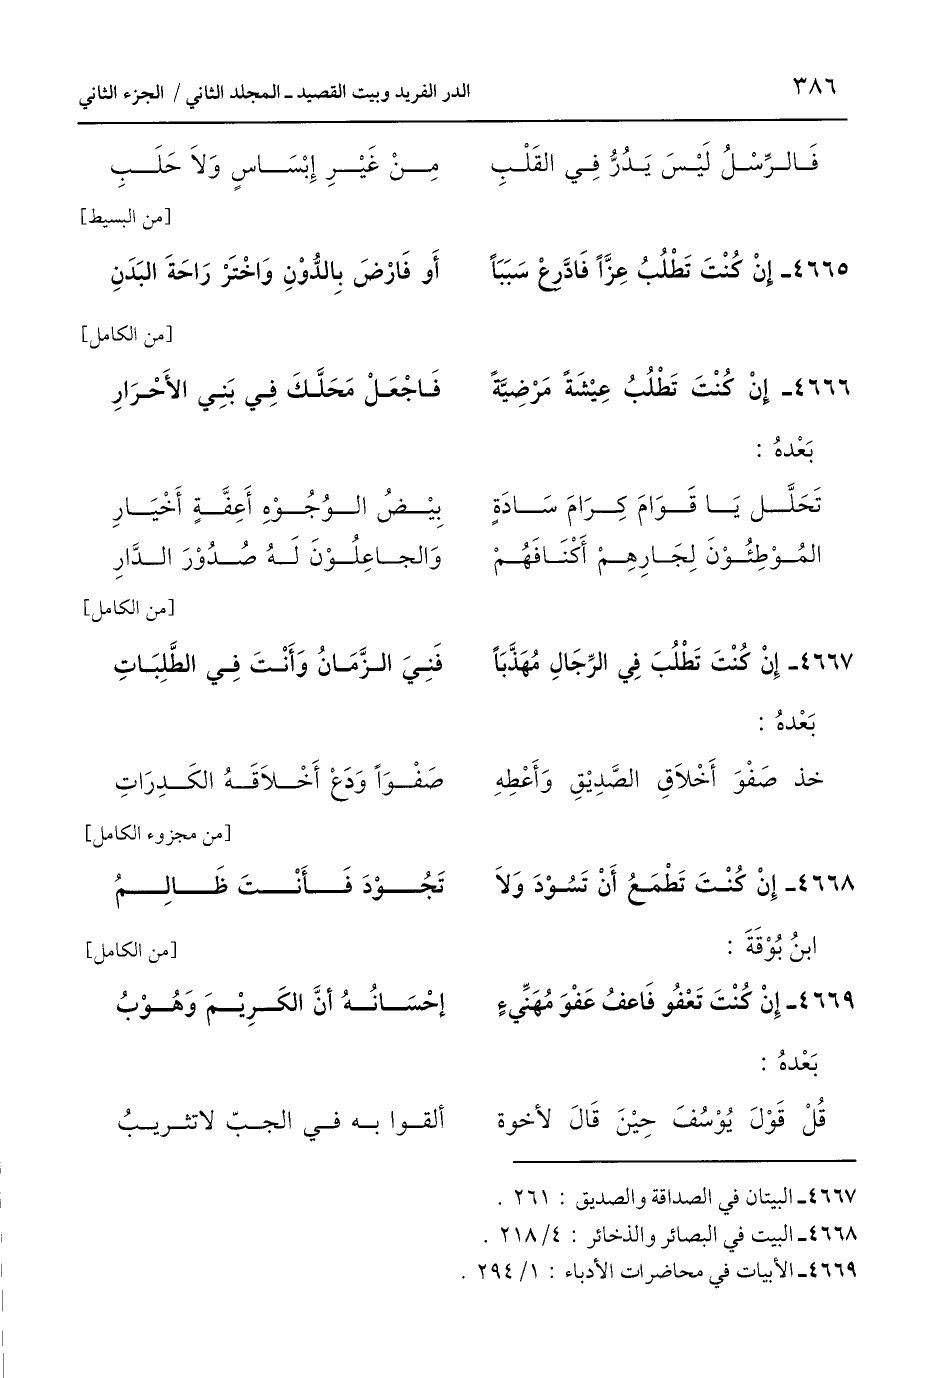 ٣٨٦ الدر الفريد وبيت القصيد ـ المجلد الثاني / الجزء الثاني
فَالرِّسْلُ لَيْسَ يَدُرُّ فِي القَلْبِ مِنْ غَيْرِ إِبْسَاسٍ وَلاَ حَلَبِ
[من البسيط]
٤٦٦٥ـ إِنْ كُنْتَ تَطْلُبُ عِزَّاً فَادَّرِعْ سَبَبَاً أَو فَارْضَ بِالدُّوْنِ وَاخْتَرْ رَاحَةَ البَدَنِ
[من الكامل]
٤٦٦٦ـ إِنْ كُنْتَ تَطْلُبُ عِيْشَةً مَرْضِيَّةً فَاجْعَلْ مَحَلَّكَ فِي بَنِي الأَحْرَارِ
بَعْدهُ :
تَحَلَّل يَا قَوَامَ كِرَامَ سَادَةٍ بِيْضُ الوُجُوْهِ أَعِفَّةٍ أَخْيَارِ
المُوْطِئُوْنَ لِجَارِهِمْ أَكْنَافَهُمْ وَالجاعِلُوْنَ لَهُ صُدُوْرَ الدَّارِ
[من الكامل]
٤٦٦٧ـ إِنْ كُنْتَ تَطْلُبَ فِي الرِّجَالِ مُهَذَّبَاً فَنِيَ الزَّمَانُ وَأَنْتَ فِي الطَّلِبَاتِ
بَعْدهُ :
خذ صَفْوَ أَخْلاَقِ الصَّدِيْقِ وَأَعْطِهِ صَفْوَاً وَدَعْ أَخْلاَقَهُ الكَدِرَاتِ
[من مجزوء الكامل]
٤٦٦٨ـ إِنْ كُنْتَ تَطْمَعُ أَنْ تَسُوْدَ وَلاَ تَجُوْدَ فَأَنْتَ ظَالِمُ
ابنُ بُوْقَةَ : [من الكامل]
٤٦٦٩ـ إِنْ كُنْتَ تَعْفُو فَاعفُ عَفْوَ مُهَنِّيءٍ إِحْسَانُهُ أنَّ الكَرِيْمَ وَهُوْبُ
بَعْدهُ :
قُلْ قَوْلَ يُوْسُفَ حِيْنَ قَالَ لأخوة ألقوا به في الجبّ لاتثريبُ
٤٦٦٧ـ البيتان في الصداقة والصديق : ٢٦١ .
٤٦٦٨ـ البيت في البصائر والذخائر : ٤/ ٢١٨ .
٤٦٦٩ـ الأبيات في محاضرات الأدباء : ١/ ٢٩٤ .